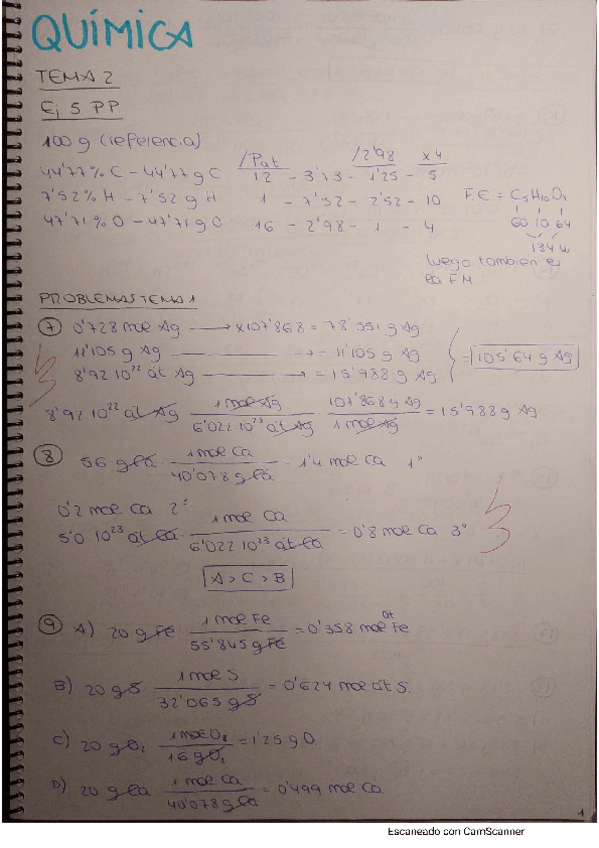 QUÍMICA
TEMA 2
Ej 5 PP
100 g (referencia)
/Pat /2'98 x4
44'77% C - 44'77 g C 12 - 3'73 - 1'25 - 5
7'52% H - 7'52 g H 1 - 7'52 - 2'52 - 10 F.E = C5H10O4
47'71% O - 47'71 g O 16 - 2'98 - 1 - 4 60 10 64
134 u
luego también es
la FM
PROBLEMAS TEMA 1
7 0'728 mol Ag → x107'868 = 78'551 g Ag
11'105 g Ag = 11'105 g Ag = 105'64 g Ag
8'92 10²² át Ag → = 15'988 g Ag
8'92 10²² át Ag 1 mol Ag / 6'022 10²³ át Ag 107'868 g Ag / 1 mol Ag = 15'988 g Ag
8 56 g Ca 1 mol Ca / 40'078 g Ca - 1'4 mol Ca 1º
0'2 mol Ca 2º
5'0 10²³ át Ca 1 mol Ca / 6'022 10²³ át Ca = 0'8 mol Ca 3º
A > C > B
9 A) 20 g Fe 1 mol Fe / 55'845 g Fe = 0'358 mol át Fe
B) 20 g S 1 mol S / 32'065 g S = 0'624 mol át S.
C) 20 g O2 1 mol O2 / 16 g O2 = 1'25 g O
D) 20 g Ca 1 mol Ca / 40'078 g Ca = 0'499 mol Ca
1
Escaneado con CamScanner